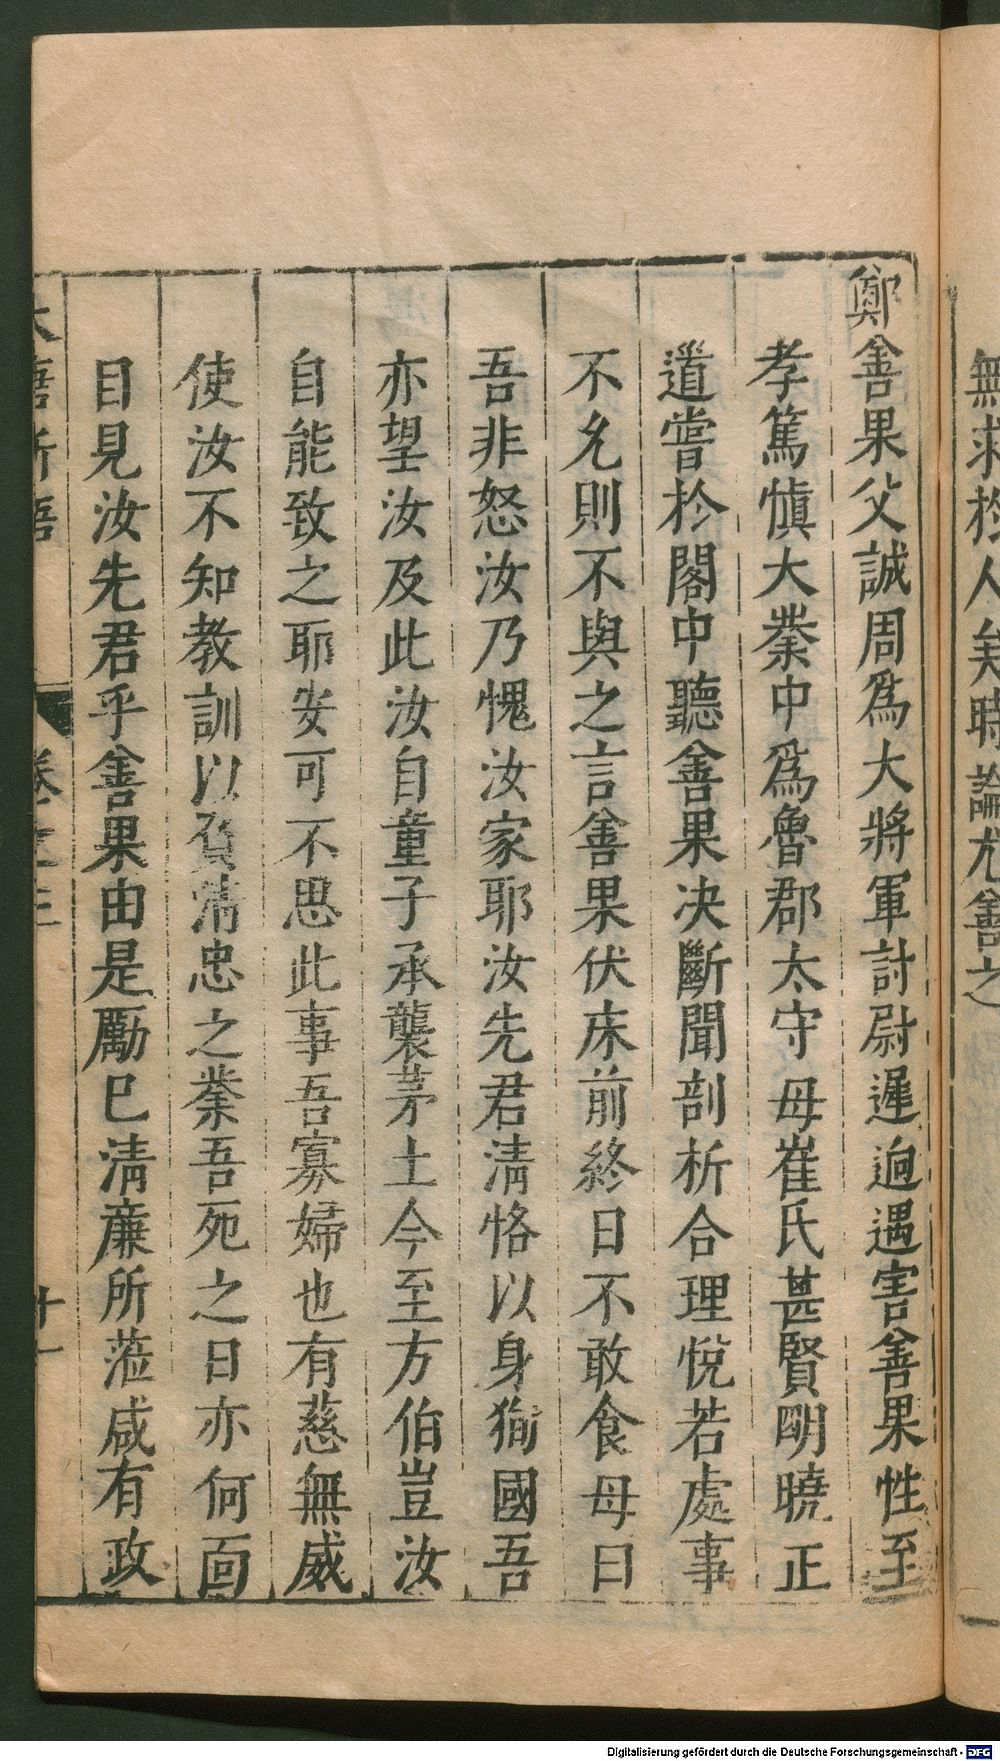 無求於人矣時論尤善之
鄭善果父誠周爲大將軍討尉遲迥遇害善果性至
孝篤慎大業中爲魯郡太守母崔氏甚賢明曉正
道嘗於閣中聽善果决斷聞剖析合理悅若處事
不允則不與之言善果伏床前終日不敢食母曰
吾非怒汝乃愧汝家耶汝先君清恪以身狥國吾
亦望汝及此汝自童子承襲茅土今至方伯豈汝
自能致之耶安可不思此事吾寡婦也有慈無威
使汝不知教訓以負清忠之業吾死之日亦何面
目見汝先君乎善果由是勵己清亷所蒞咸有政
大唐新語 卷之三 十一
Digitalisierung gefördert durch die Deutsche Forschungsgemeinschaft - DFG